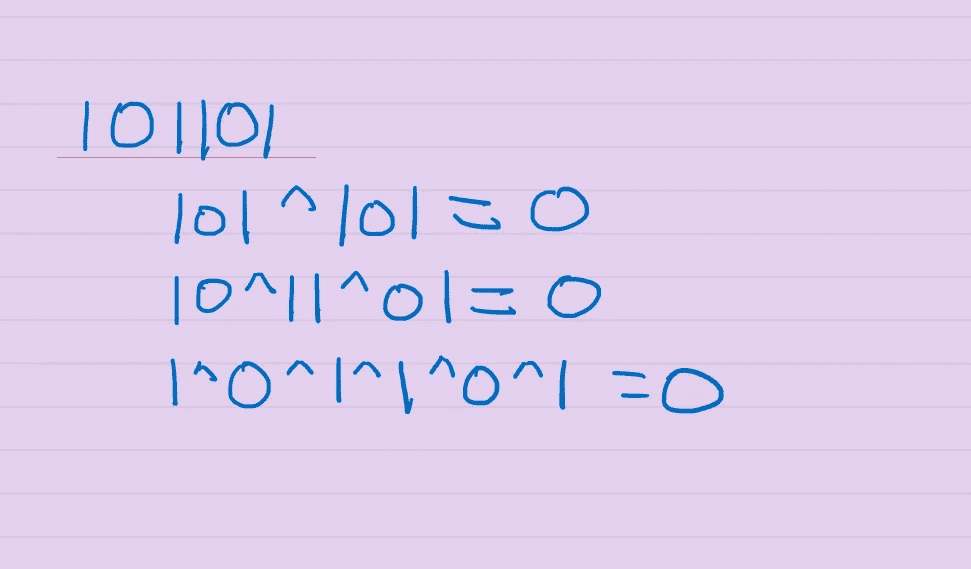 101101
101 ^ 101 = 0
10^11^01 = 0
1^0^1^1^0^1 = 0